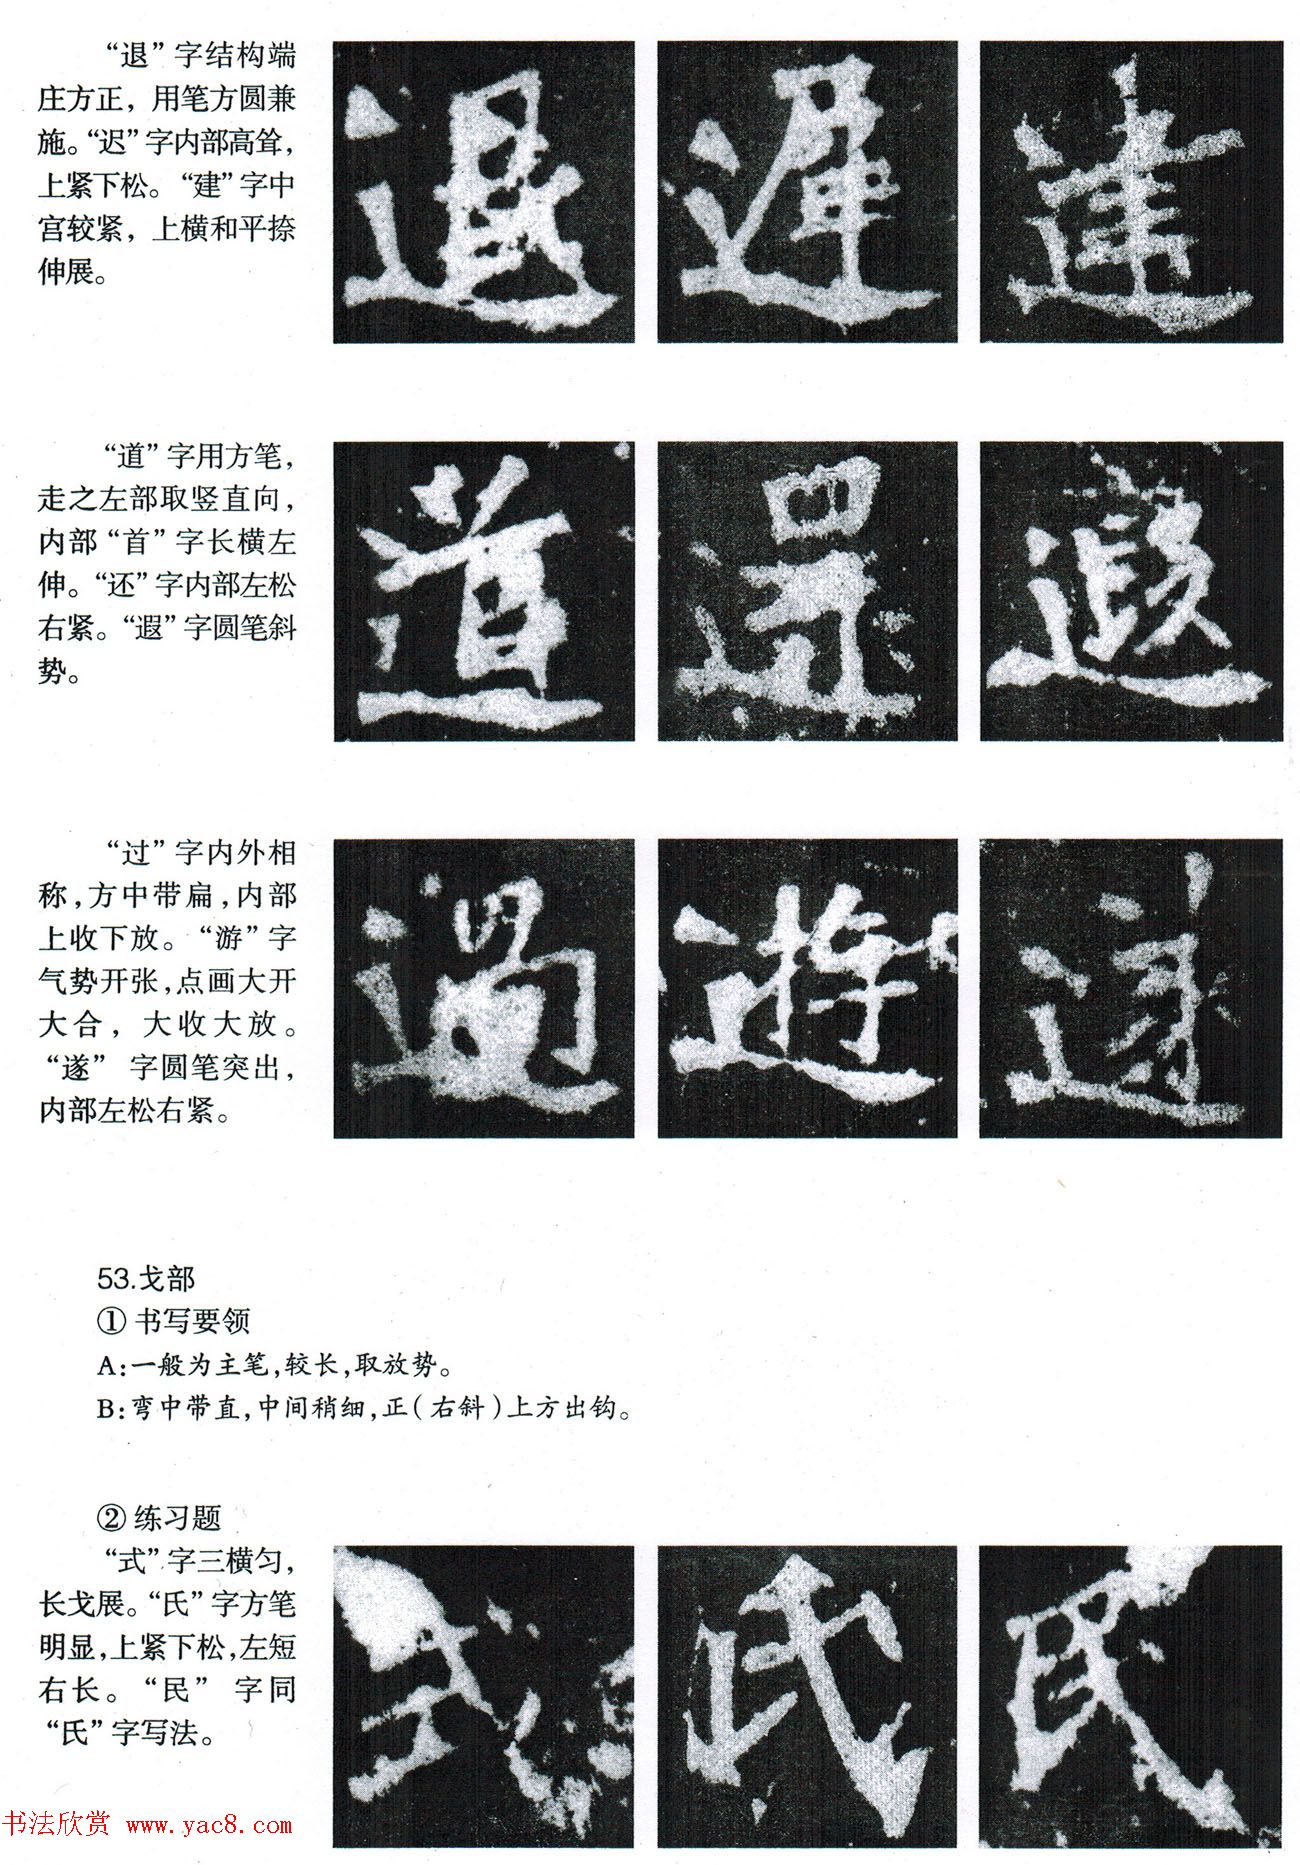 “退”字结构端
庄方正，用笔方圆兼
施。“迟”字内部高耸，
上紧下松。“建”字中
宫较紧，上横和平捺
伸展。
退 遲 建
“道”字用方笔，
走之左部取竖直向，
内部“首”字长横左
伸。“还”字内部左松
右紧。“遐”字圆笔斜
势。
道 還 遐
“过”字内外相
称，方中带扁，内部
上收下放。“游”字
气势开张，点画大开
大合，大收大放。
“遂”字圆笔突出，
内部左松右紧。
過 遊 遂
53.戈部
① 书写要领
A:一般为主笔,较长,取放势。
B:弯中带直,中间稍细,正(右斜)上方出钩。
② 练习题
“式”字三横匀，
长戈展。“氏”字方笔
明显，上紧下松，左短
右长。“民”字同
“氏”字写法。
式 氏 民
书法欣赏 www.yac8.com